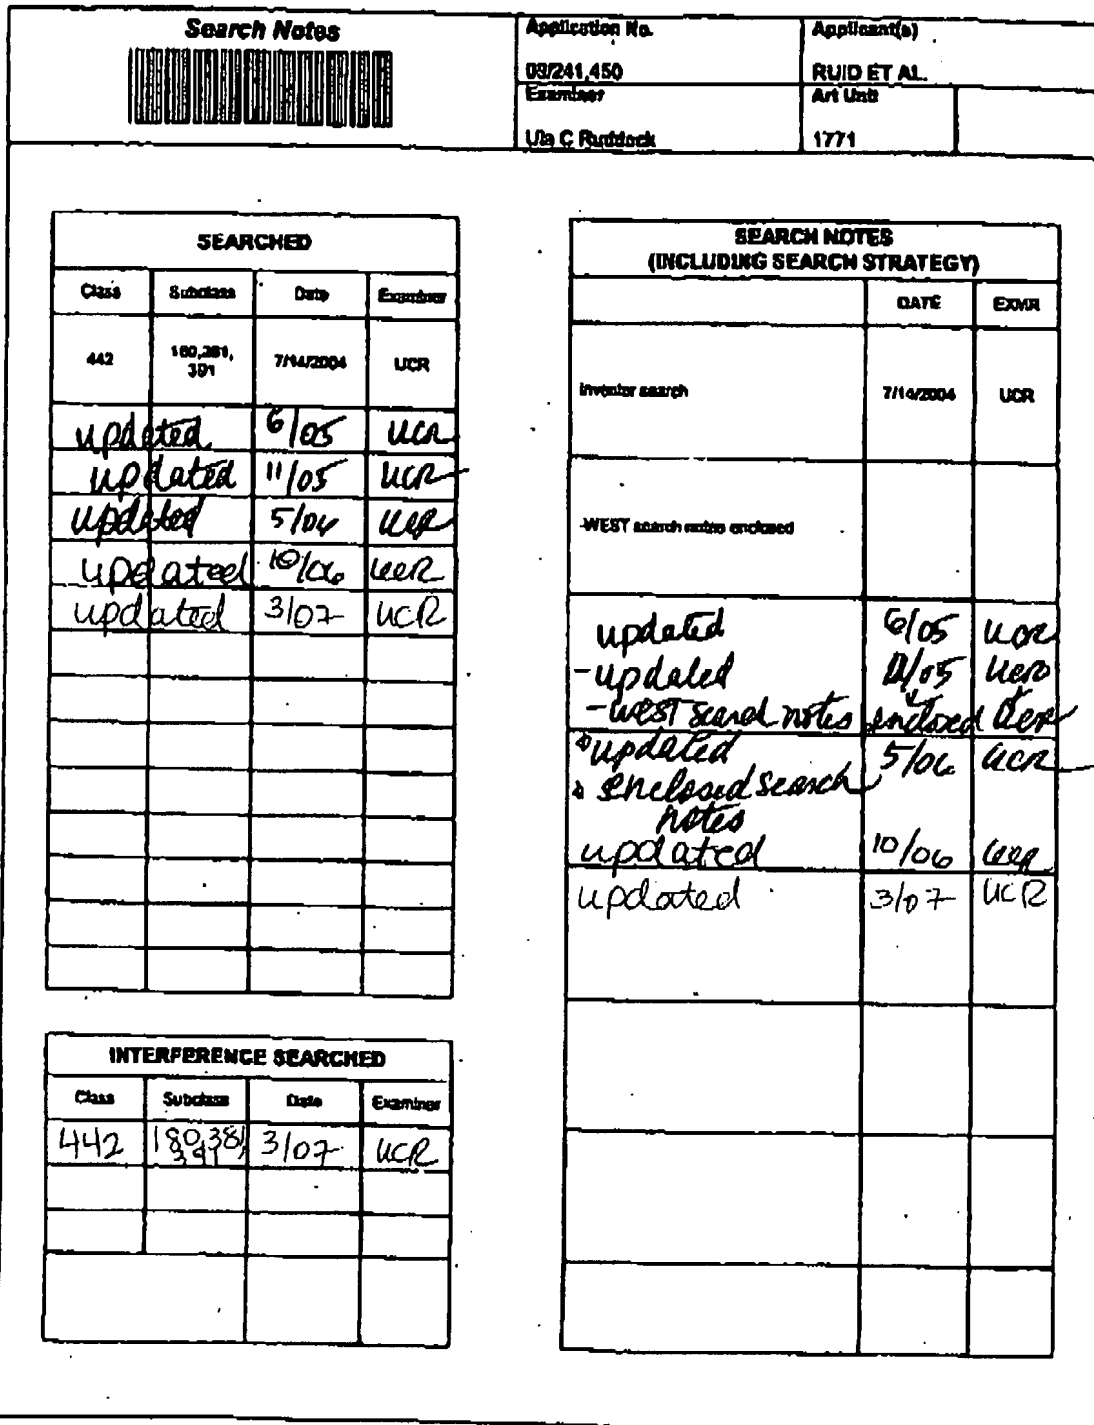 Search Notes
Application No.
Applicant(s)
09/241,450
RUID ET AL.
Examiner
Art Unit
Ula C Ruddock
1771
SEARCHED
Class Subclass Date Examiner
442 180,381, 391 7/14/2004 UCR
updated 6/05 UCR
updated 11/05 UCR
updated 5/06 UCR
updated 10/06 UCR
updated 3/07 UCR
INTERFERENCE SEARCHED
Class Subclass Date Examiner
442 180,381, 391 3/07 UCR
SEARCH NOTES
(INCLUDING SEARCH STRATEGY)
DATE EXMR
Inventor search 7/14/2004 UCR
-WEST search notes enclosed
updated 6/05 UCR
-updated 11/05 UCR
-WEST search notes enclosed UCR
updated 5/06 UCR
enclosed search
notes
updated 10/06 UCR
updated 3/07 UCR